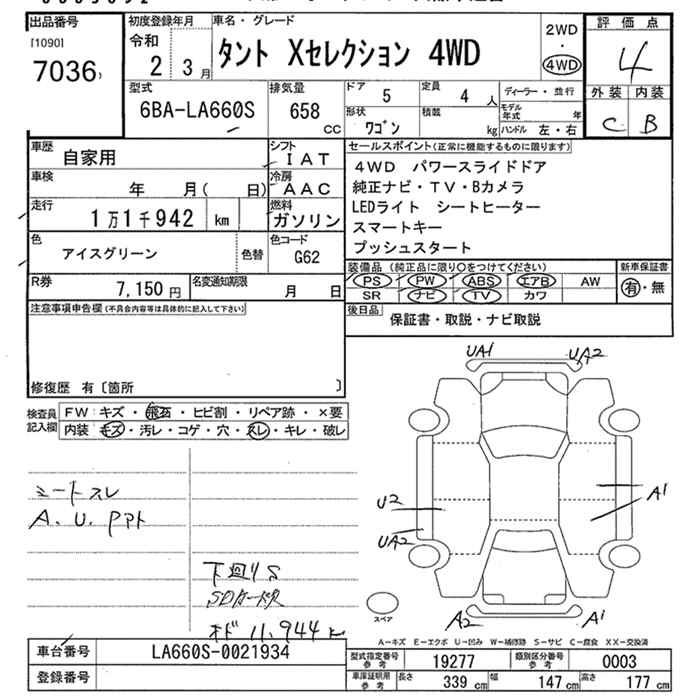 出品番号
[1090]
7036
初度登録年月
令和
2 3月
車名・グレード
タント Xセレクション 4WD
2WD
・
4WD
評価点
4
外装 内装
C B
型式
6BA-LA660S
排気量
658
cc
ドア
5
定員
4 人
形状
ワゴン
積載
kg
ディーラー・並行
モデル年式 年
ハンドル 左・右
車歴
自家用
シフト
IAT
車検
年 月( 日)
冷房
AAC
走行
1万1千942 km
燃料
ガソリン
色
アイスグリーン
色替
色コード
G62
R券
7,150 円
名変通知期限
月 日
セールスポイント(正常に機能するものに限ります)
4WD パワースライドドア
純正ナビ・TV・Bカメラ
LEDライト シートヒーター
スマートキー
プッシュスタート
装備品 (純正品に限り○をつけてください)
PS PW ABS エアB AW
SR ナビ TV カワ
新車保証書
有・無
後日品
保証書・取説・ナビ取説
注意事項申告欄(不具合内容等は具体的に記入して下さい)
修復歴 有〔箇所 〕
検査員
記入欄
FW: キズ・飛石・ヒビ割・リペア跡・×要
内装 キズ・汚レ・コゲ・穴・スレ・キレ・破レ
シートスレ
A.U.Pアト
下回りS
SDカード欠
オド 11,944k
UA1
UA2
U2
UA2
A1
A2
A1
スペア
A-キズ E-エクボ U-凹み W-補修跡 S-サビ C-腐食 XX-交換済
車台番号
LA660S-0021934
登録番号
型式指定番号
参考
19277
類別区分番号
参考
0003
車庫証明用
参考
長さ
339 cm
幅
147 cm
高さ
177 cm